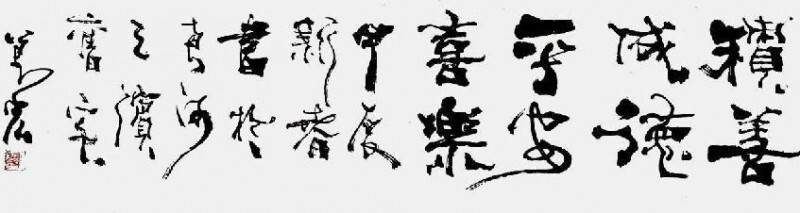 積善
成德
平安
喜樂
甲辰
新春
書於
之濱